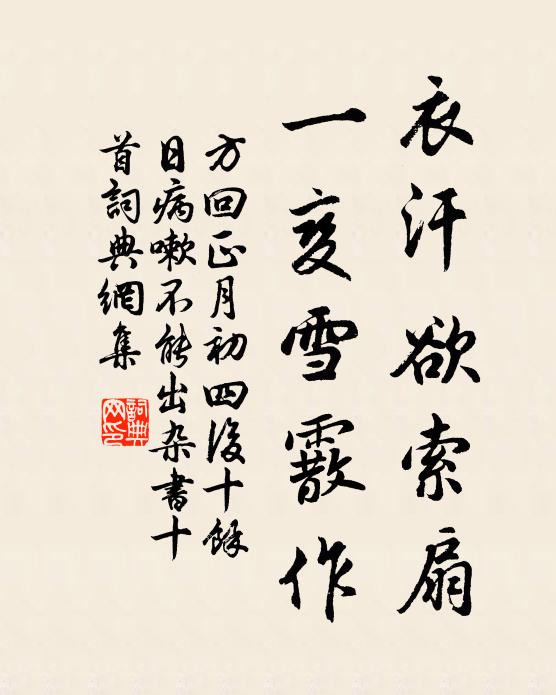 衣汗欲索扇
一变雪霰作
方回正月初四後十餘
日病嗽不能出杂書十
首詞典網集
詞典
网印